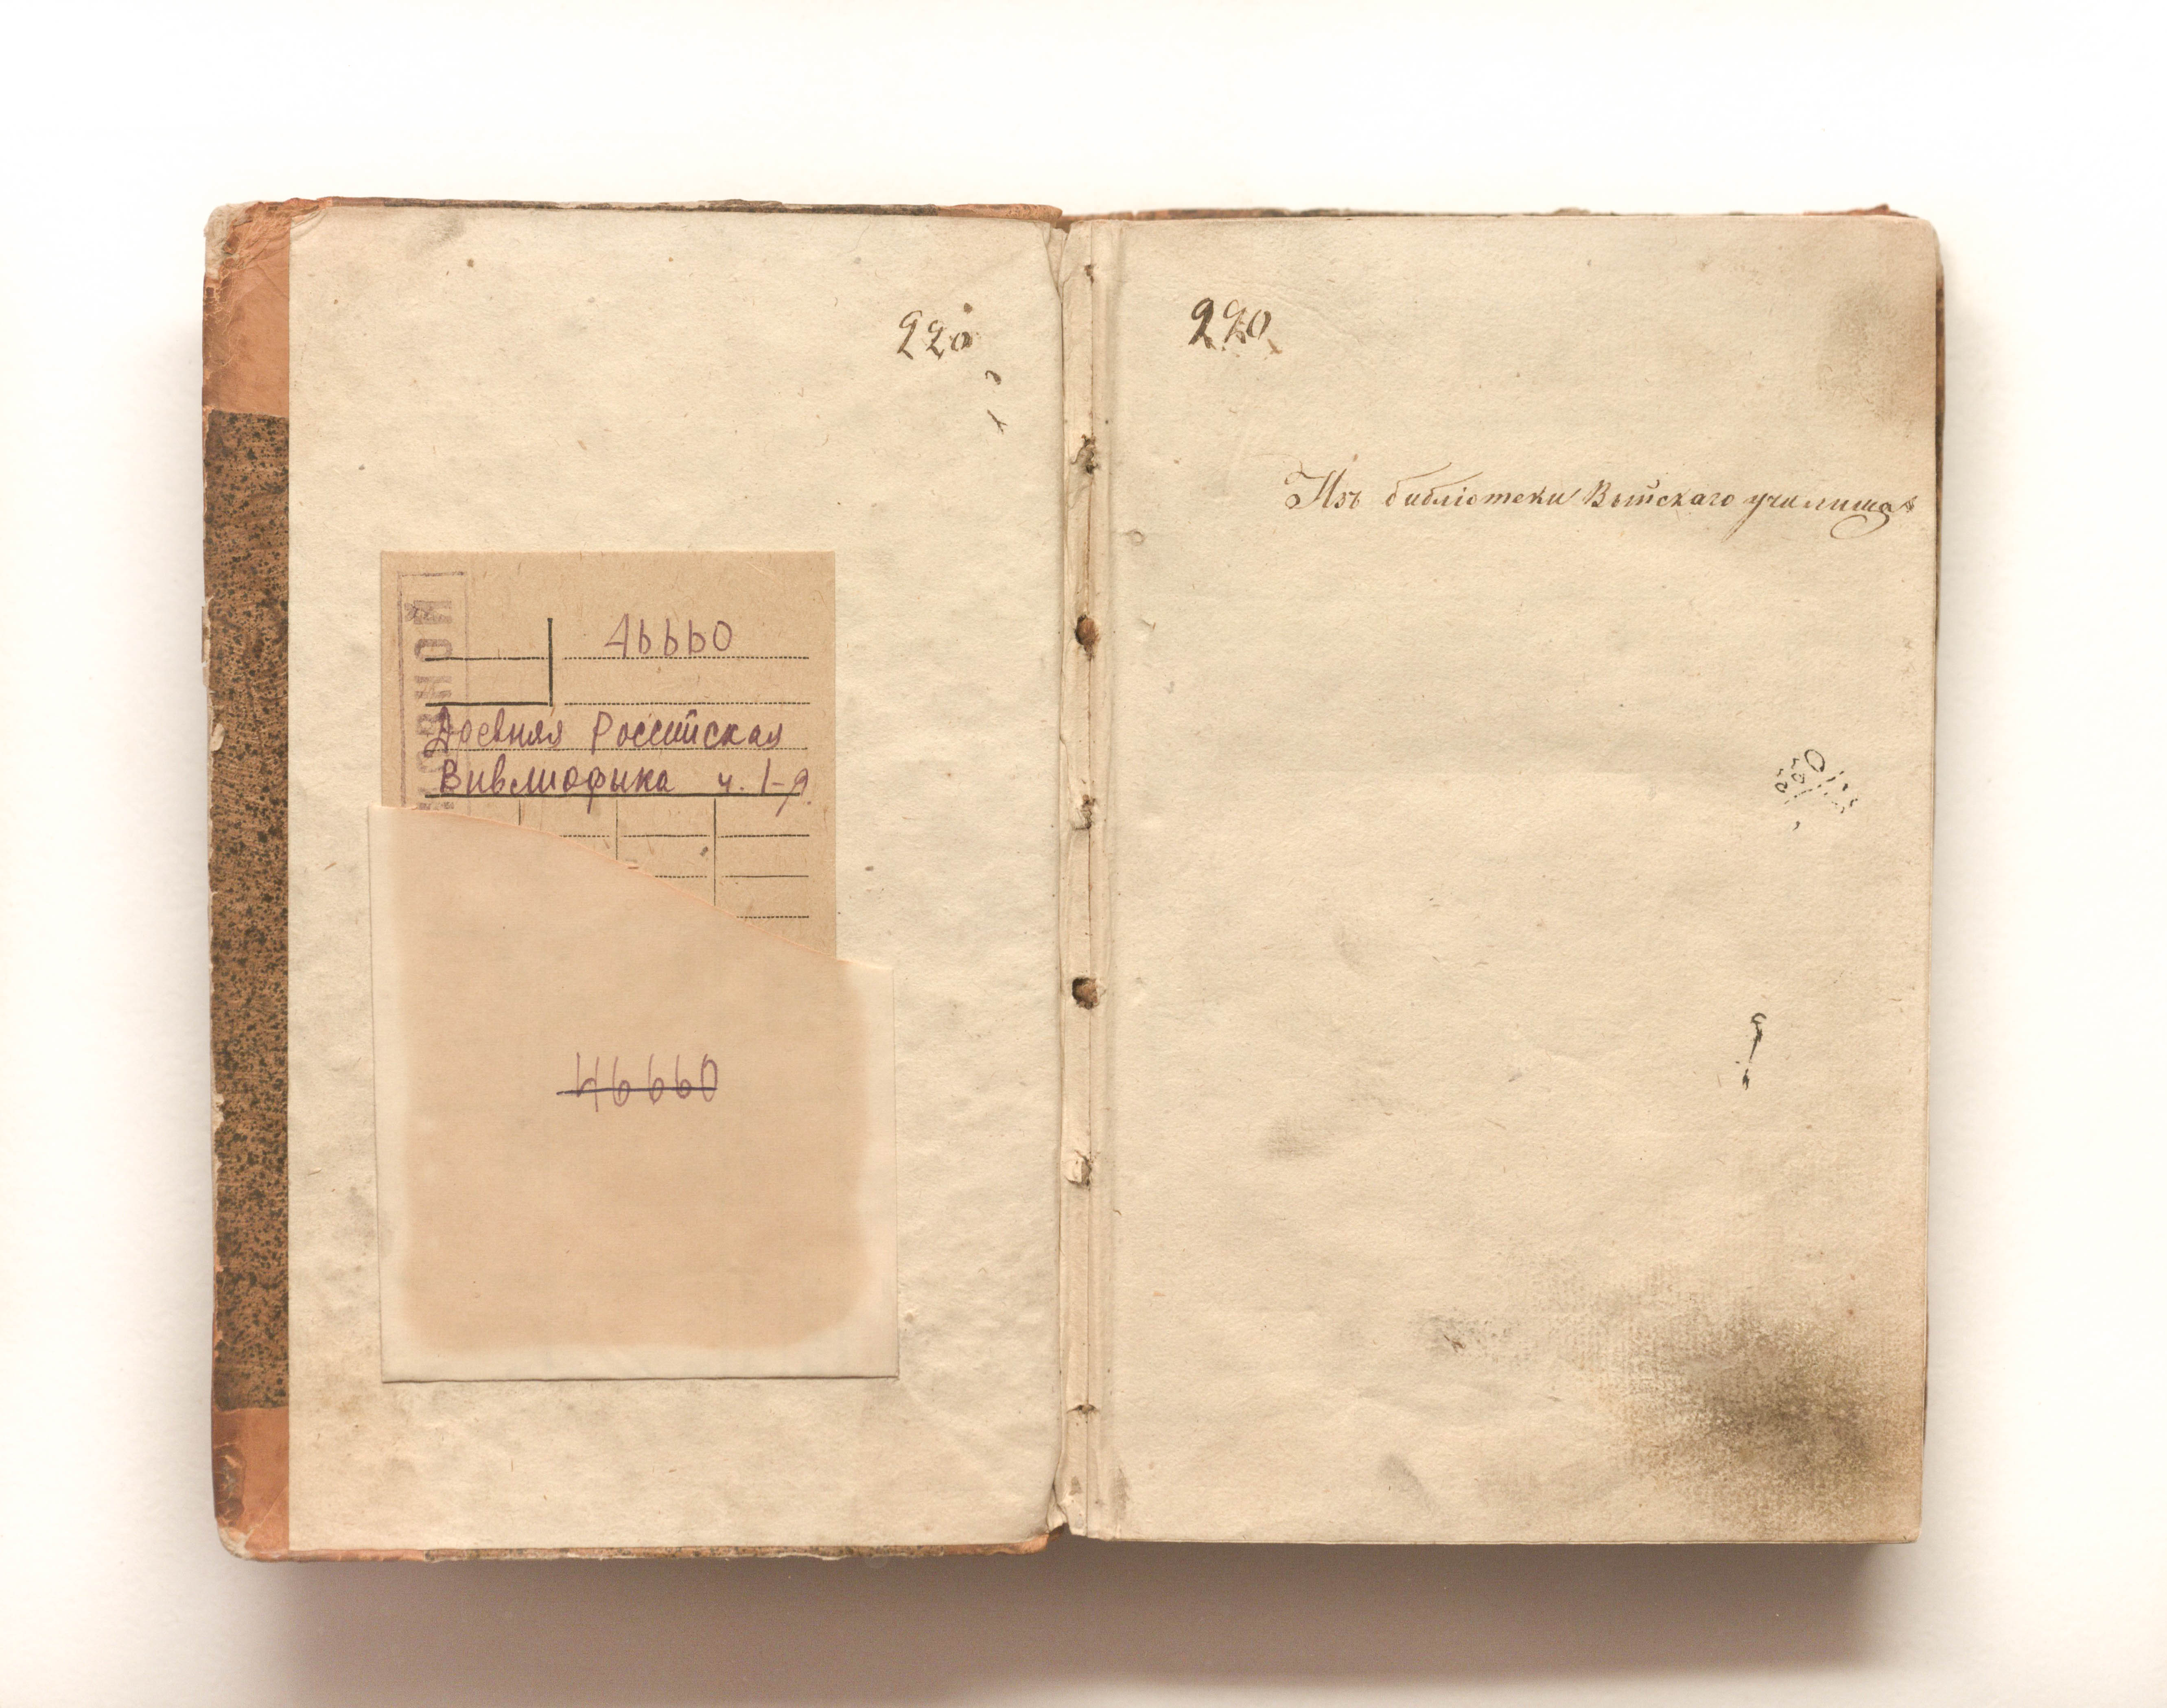 220
46660
Древняя Россійская
Вивлиофика ч. 1-я
46660
220
Изъ библіотеки Вытскаго училища